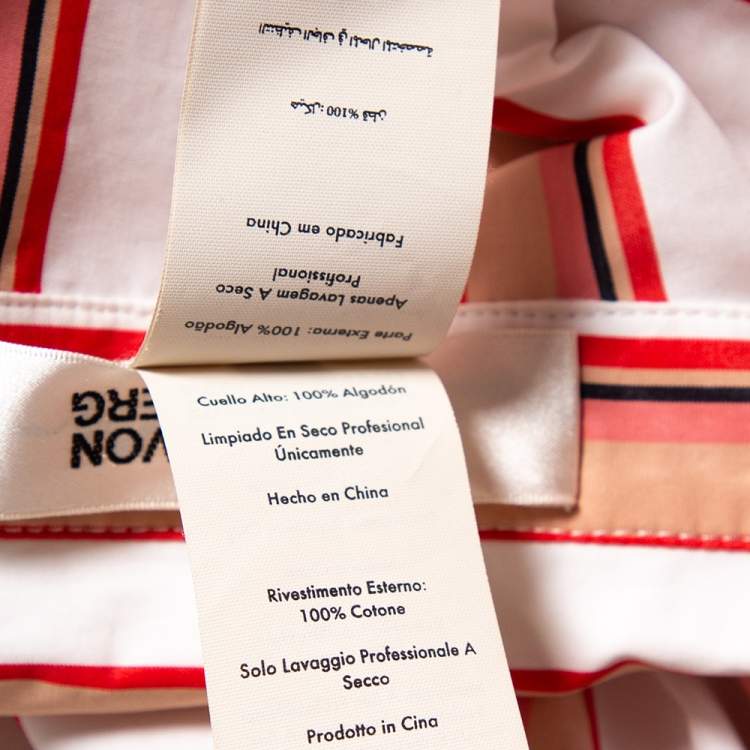 التنظيف الجاف في المحال المتخصصة
هيكل: 100% قطن
Fabricado em China
Profissional
Apenas Lavagem A Seco
Parte Externa: 100% Algodão
ERG
VON
Cuello Alto: 100% Algodón
Limpiado En Seco Profesional
Únicamente
Hecho en China
Rivestimento Esterno:
100% Cotone
Solo Lavaggio Professionale A
Secco
Prodotto in Cina